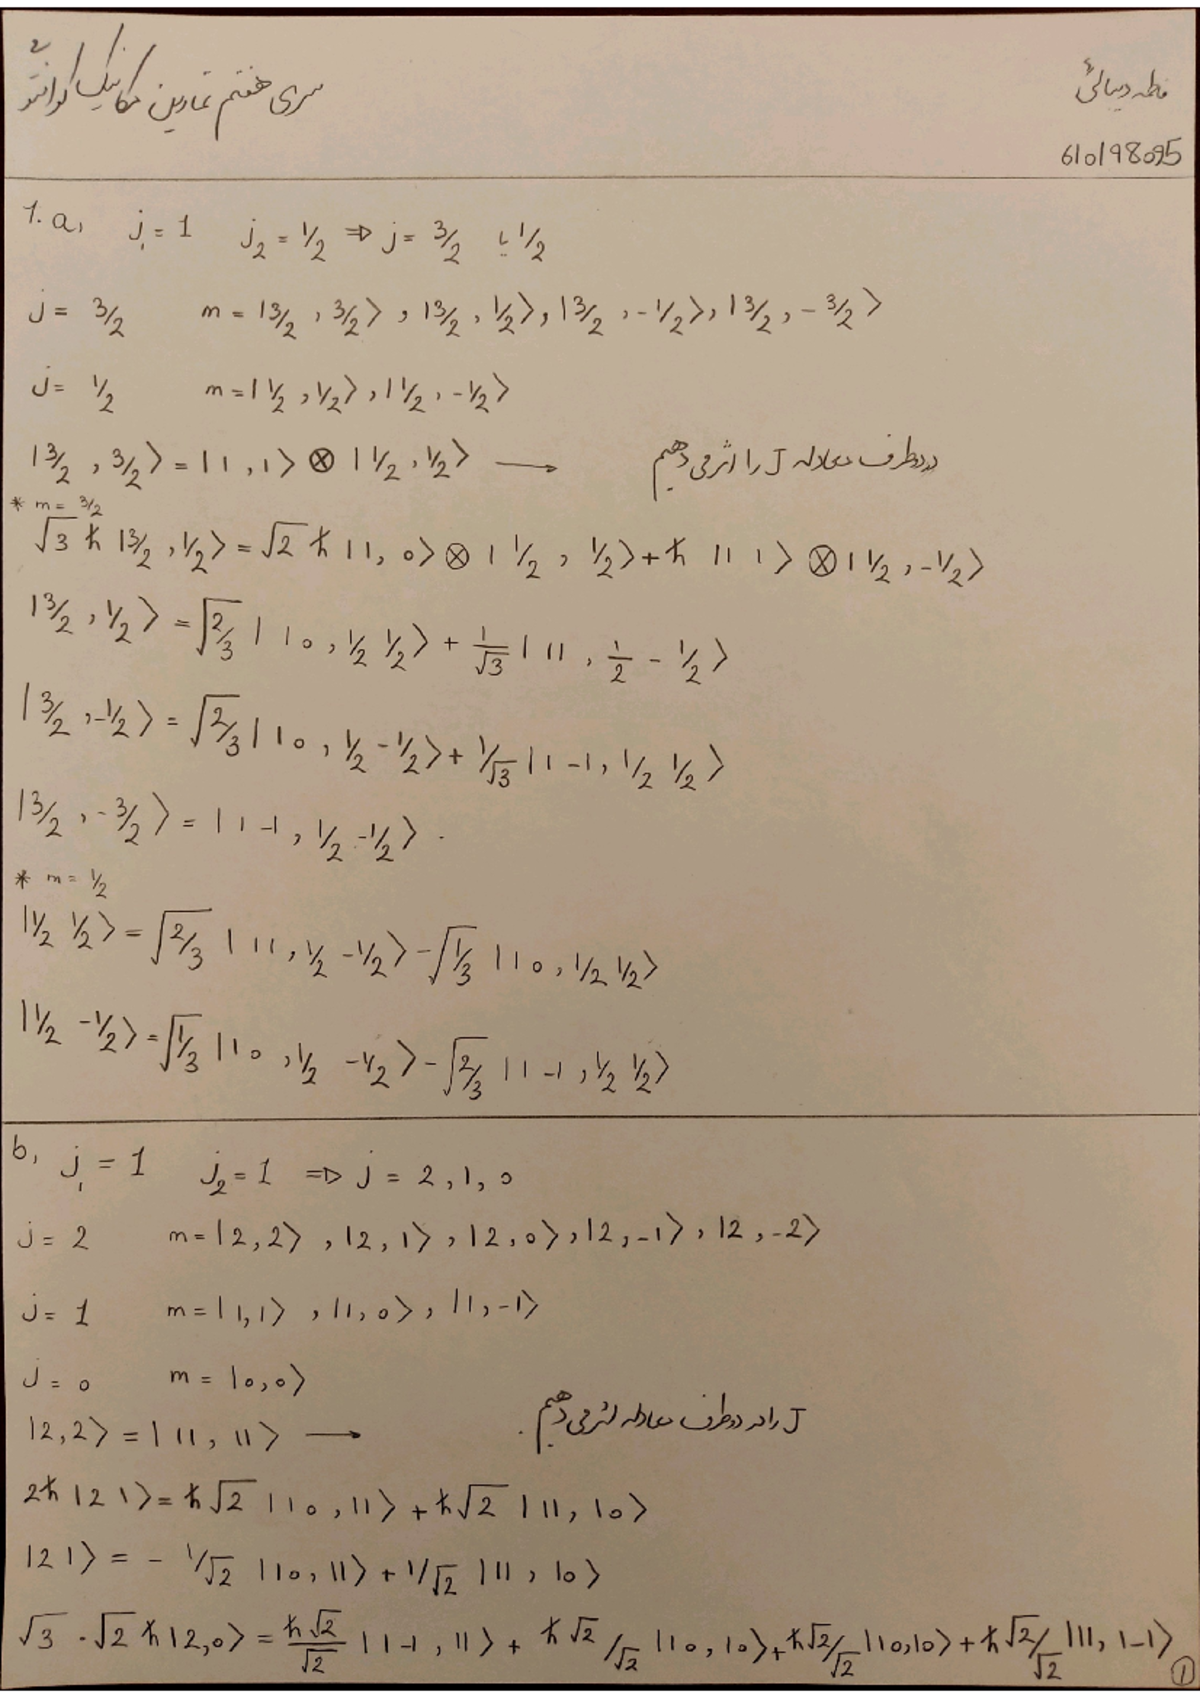 فاطمه دیبائی
سری هفتم تمارین مکانیک کوانتوم
610198095
1. a, j₁ = 1 j₂ = 1/2 ⇒ j = 3/2 یا 1/2
j = 3/2 m = |3/2, 3/2⟩, |3/2, 1/2⟩, |3/2, -1/2⟩, |3/2, -3/2⟩
j = 1/2 m = |1/2, 1/2⟩, |1/2, -1/2⟩
|3/2, 3/2⟩ = |1, 1⟩ ⊗ |1/2, 1/2⟩ ⟶ در دو طرف معادله J را اثر می دهیم
* m = 3/2
√3 ħ |3/2, 1/2⟩ = √2 ħ |1, 0⟩ ⊗ |1/2, 1/2⟩ + ħ |1 1⟩ ⊗ |1/2, -1/2⟩
|3/2, 1/2⟩ = √(2/3) |1 0, 1/2 1/2⟩ + 1/√3 |1 1, 1/2 - 1/2⟩
|3/2, -1/2⟩ = √(2/3) |1 0, 1/2 -1/2⟩ + 1/√3 |1 -1, 1/2 1/2⟩
|3/2, -3/2⟩ = |1 -1, 1/2 -1/2⟩.
* m = 1/2
|1/2 1/2⟩ = √(2/3) |1 1, 1/2 -1/2⟩ - √(1/3) |1 0, 1/2 1/2⟩
|1/2 -1/2⟩ = √(1/3) |1 0, 1/2 -1/2⟩ - √(2/3) |1 -1, 1/2 1/2⟩
b, j₁ = 1 j₂ = 1 ⇒ j = 2, 1, 0
j = 2 m = |2, 2⟩, |2, 1⟩, |2, 0⟩, |2, -1⟩, |2, -2⟩
j = 1 m = |1, 1⟩, |1, 0⟩, |1, -1⟩
j = 0 m = |0, 0⟩
|2, 2⟩ = |1 1, 1 1⟩ ⟶ J را در دو طرف معادله اثر می دهیم.
2ħ |2 1⟩ = ħ√2 |1 0, 1 1⟩ + ħ√2 |1 1, 1 0⟩
|2 1⟩ = - 1/√2 |1 0, 1 1⟩ + 1/√2 |1 1, 1 0⟩
√3 · √2 ħ |2, 0⟩ = ħ√2/√2 |1 -1, 1 1⟩ + ħ√2/√2 |1 0, 1 0⟩ + ħ√2/√2 |1 0, 1 0⟩ + ħ√2/√2 |1 1, 1 -1⟩
1